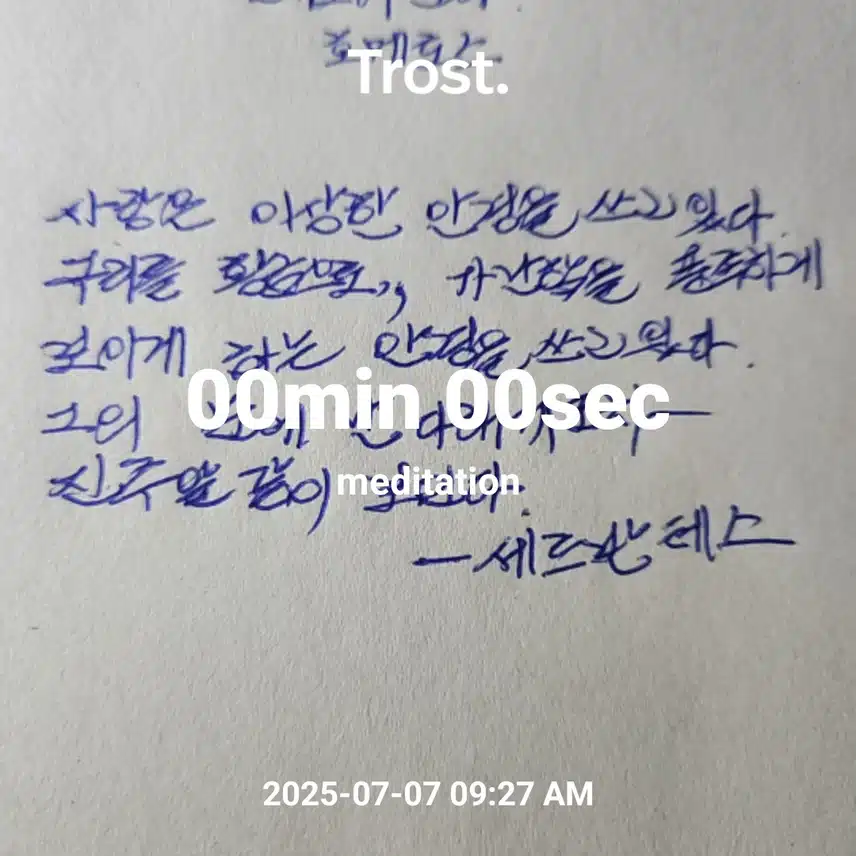 호메로스.
Trost.
사랑은 이상한 안경을 쓰고 있다.
구리를 황금으로, 가난함을 풍족하게
보이게 하는 안경을 쓰고 있다.
00min 00sec
그의 눈에 난 다래끼조차
진주알 같이 보인다.
meditation
- 세르반테스
2025-07-07 09:27 AM